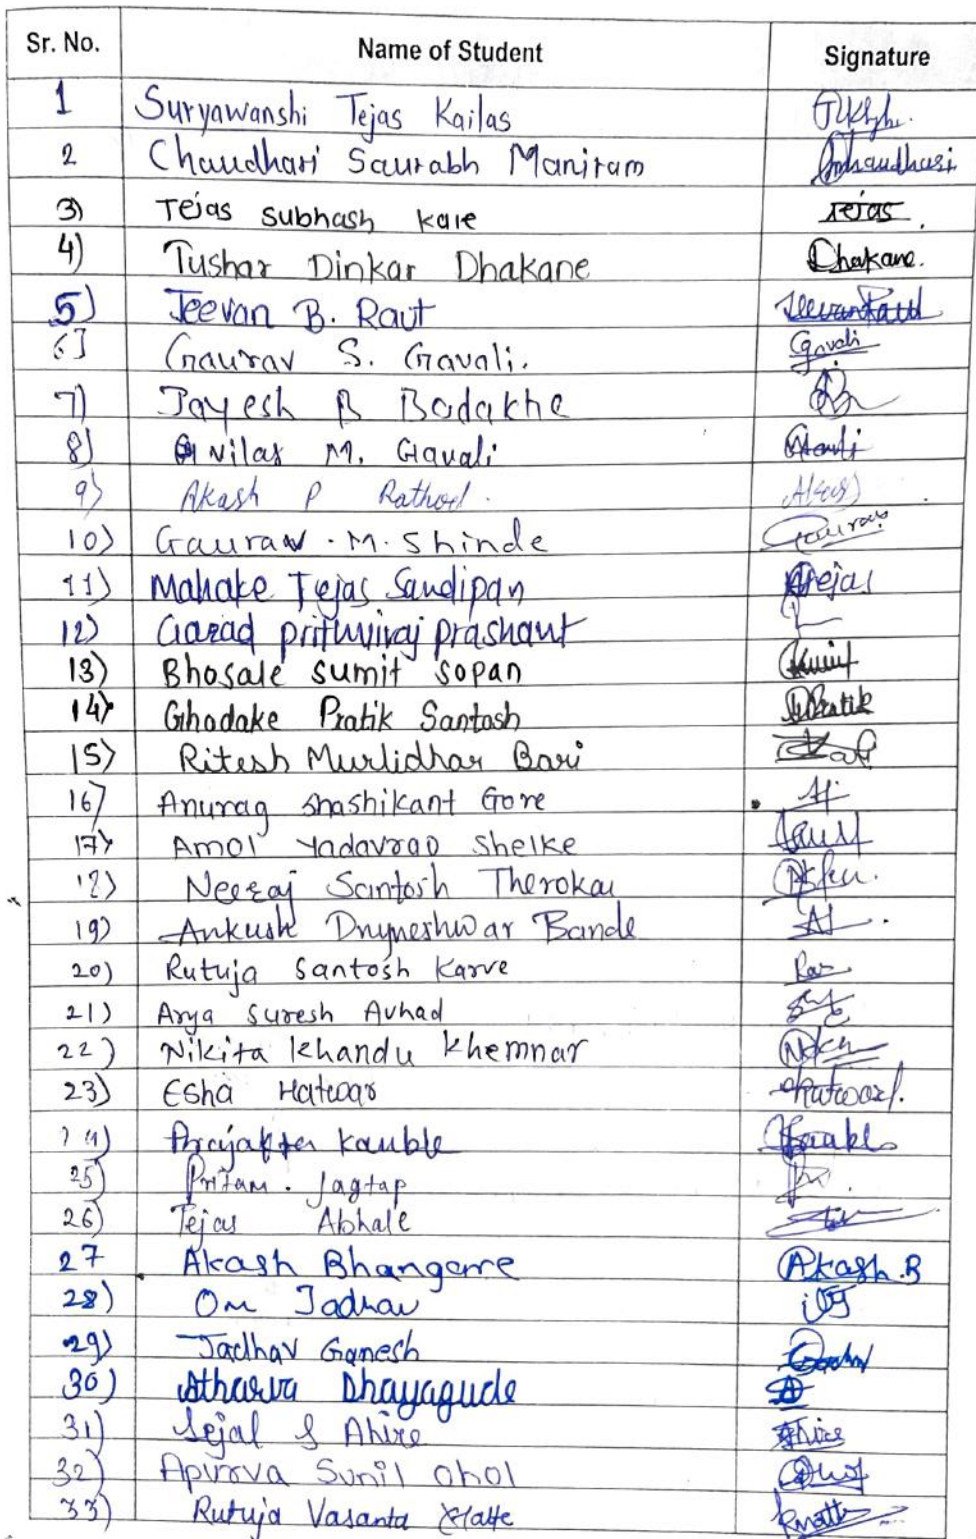 Sr. No. Name of Student Signature
1 Suryawanshi Tejas Kailas
2 Chaudhari Saurabh Maniram Chaudhari
3) Tejas Subhash Kale Tejas
4) Tushar Dinkar Dhakane Dhakane.
5) Jeevan B. Raut JeevanRaut
6] Gaurav S. Gavali. Gavali
7) Jayesh B Bodakhe
8) Vilas M. Gavali
9) Akash P Rathod.
10) Gaurav . M. Shinde Gaurav
11) Mahake Tejas Sandipan Tejas
12) Garad prithviraj prashant
13) Bhosale sumit sopan
14) Ghodake Pratik Santosh Pratik
15) Ritesh Murlidhar Bari
16) Anurag Shashikant Gore
17) Amol Yadavrao Shelke
18) Neeraj Santosh Therokar
19) Ankush Dnyneshwar Bande
20) Rutuja Santosh Karve
21) Arya Suresh Avhad
22) Nikita Khandu Khemnar
23) Esha Hatwar
24) Kamble
25) Pritam . Jagtap
26) Tejas Abhale
27 Akash Bhangare Akash.B
28) Om Jadhav
29) Jadhav Ganesh
30) Atharva Dhayagude
31) Sejal S Ahire Ahire
32) Apurva Sunil Ohol
33) Rutuja Vasanta